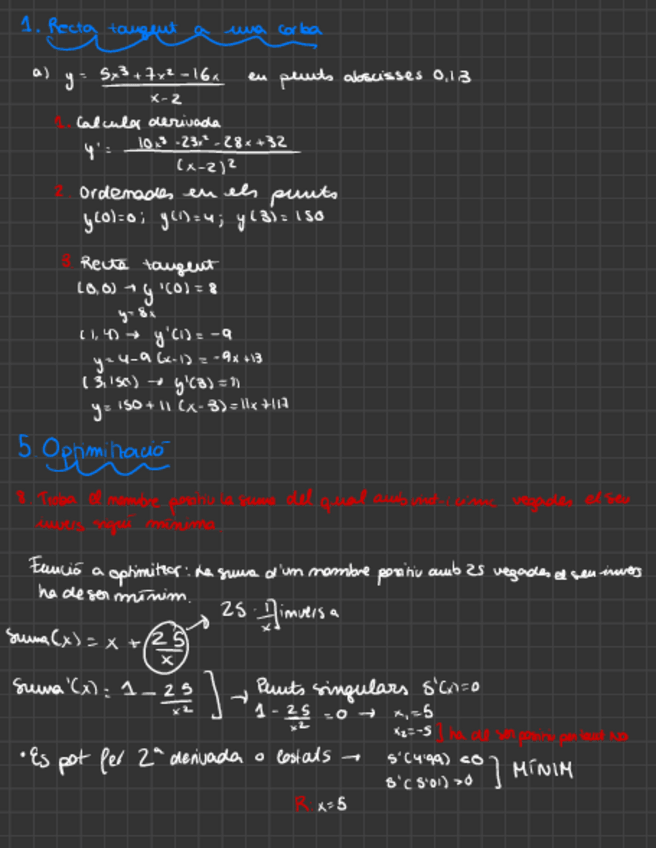 1. Recta tangent a una corba
a) y = 5x³ + 7x² - 16x / x - 2 en punts abscisses 0,1,3
1. Calcular derivada
y' = 10x³ - 23x² - 28x + 32 / (x-2)²
2. Ordenades en els punts
y(0)=0; y(1)=4; y(3)=150
3. Recta tangent
(0,0) → y'(0) = 8
y=8x
(1,4) → y'(1) = -9
y = 4-9(x-1) = -9x+13
(3,150) → y'(3)=11
y = 150 + 11 (x-3) = 11x + 117
5. Optimització
8. Troba el nombre positiu la suma del qual amb vegades el seu
invers sigui mínima
Funció a optimitzar: La suma d'un nombre positiu amb 25 vegades el seu invers
ha de ser mínim.
25 · 1/x ] inversa
Suma(x) = x + 25/x
Suma'(x) = 1 - 25/x² ] → Punts singulars S'(x)=0
1 - 25/x² = 0 → x₁=5
x₂=-5 ] ha de ser positiu
• Es pot fer 2ª derivada o costats → S'(4'99) <0
S'(5'01) >0 ] MÍNIM
R: x=5